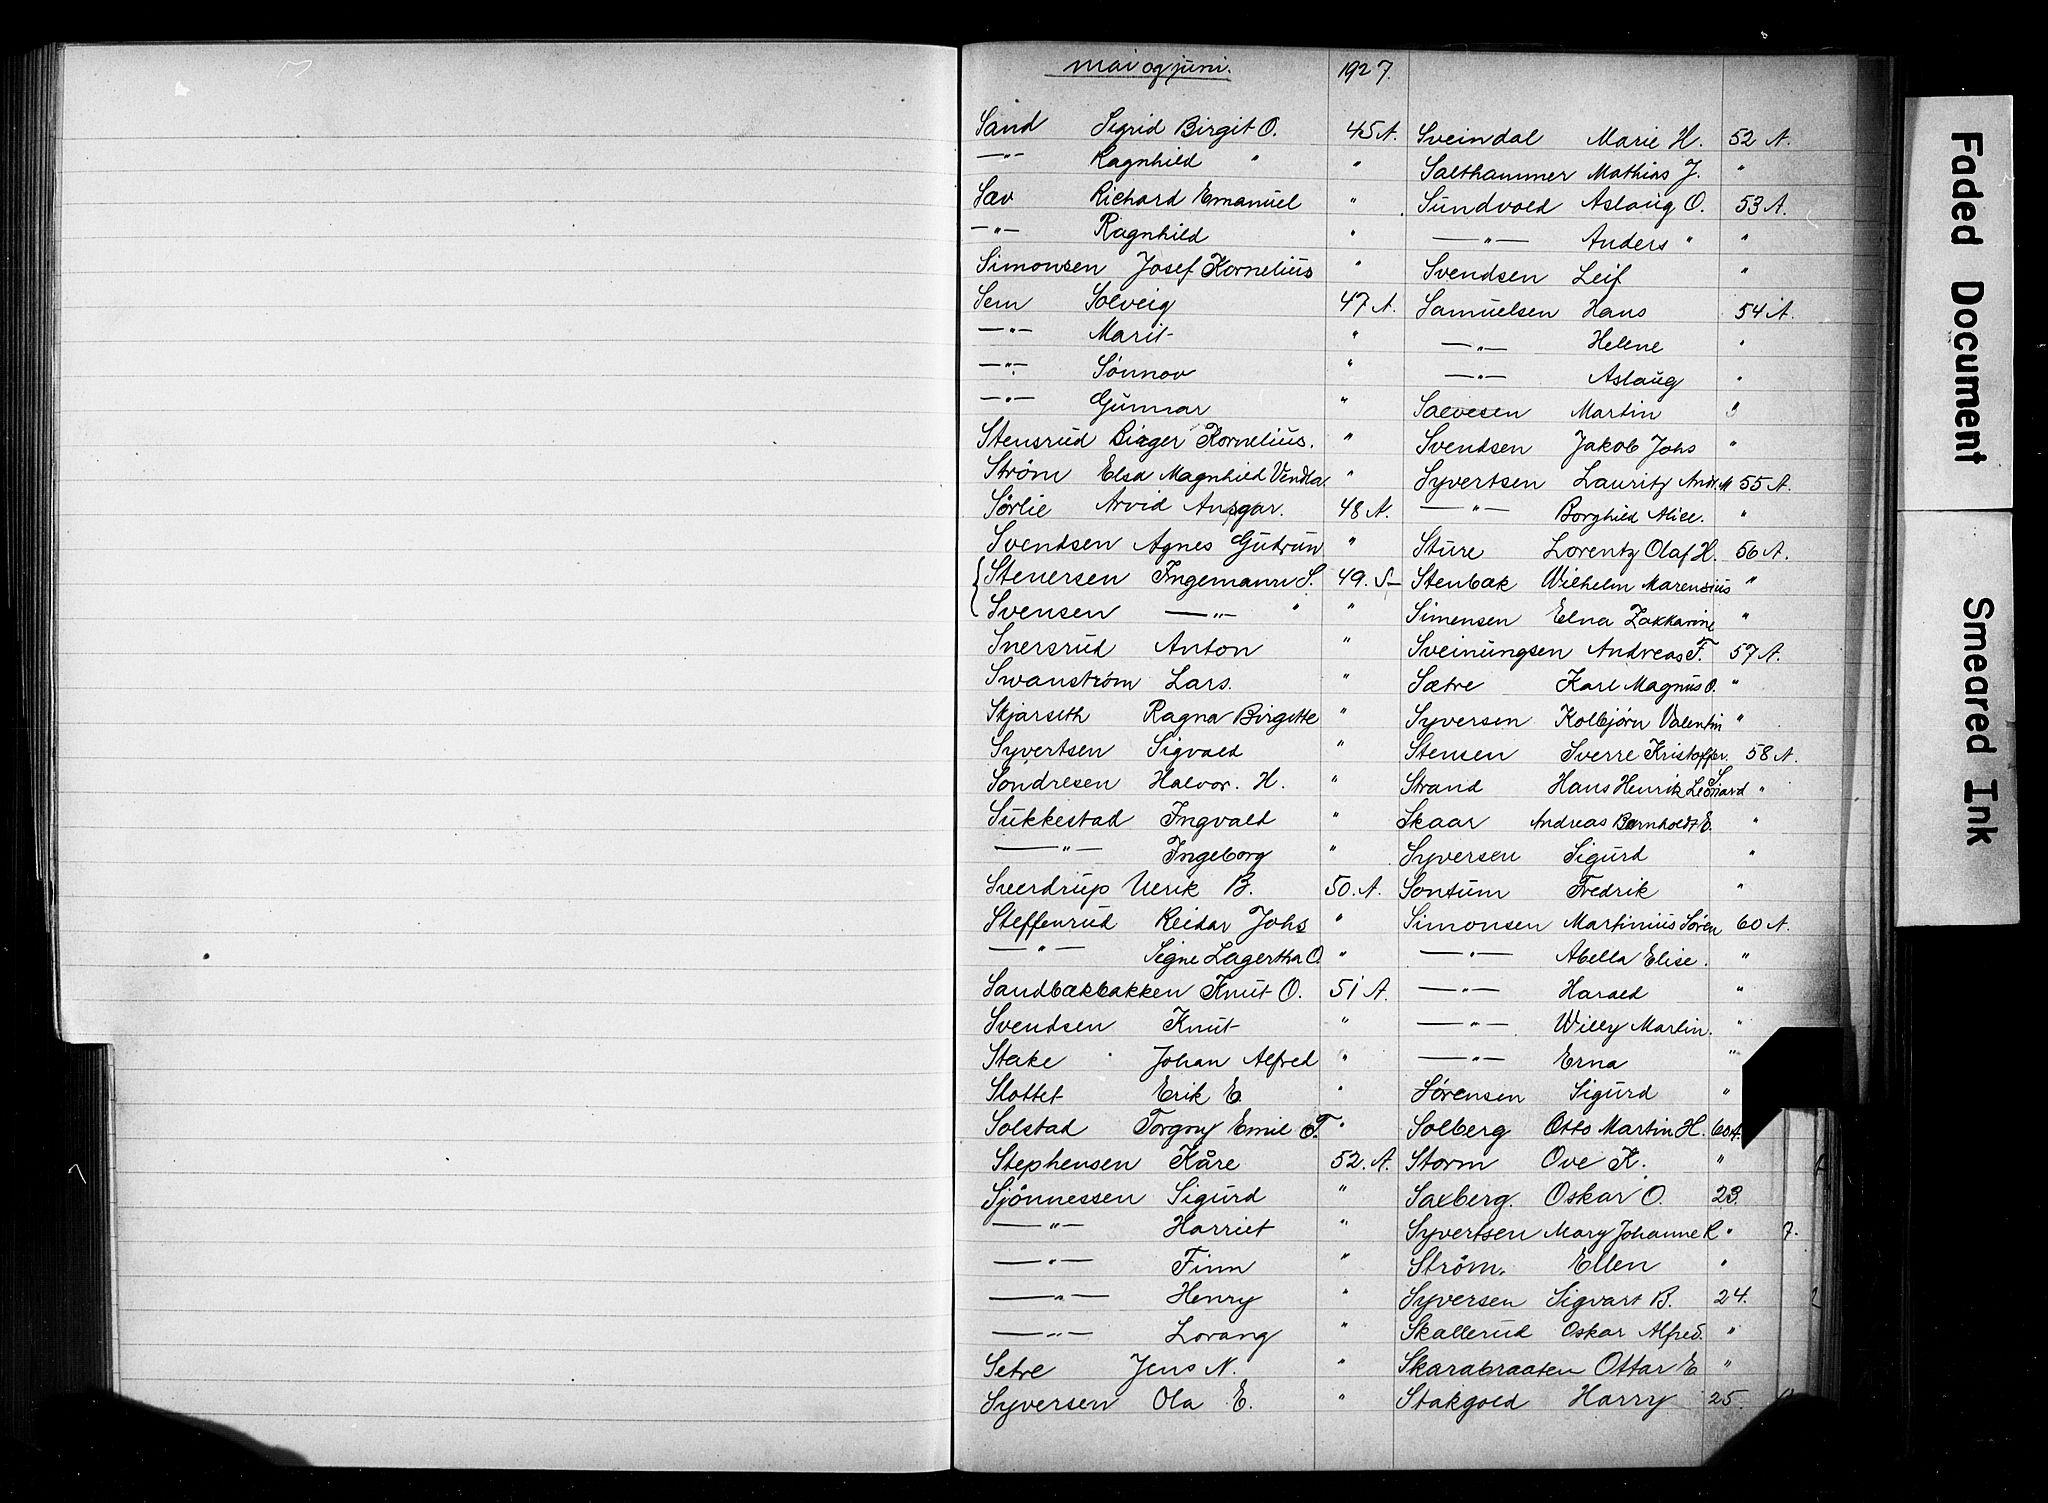 mai og juni. 1927.
Sand Sigrid Birgit O. 45 A.
—"— Ragnhild " "
Sav Richard Emanuel "
—"— Ragnhild "
Simonsen Josef Kornelius "
Sem Solveig 47 A.
—"— Marit "
—"— Sönnov "
—"— Gunnar "
Stensrud Birger Kornelius. "
Ström Elsa Magnhild Vendla "
Sörlie Arvid Ansgar. 48 A.
Svendsen Agnes Gudrun "
Stenersen Ingemann S. 49. S—
Svensen —"— " "
Snersrud Anton "
Swanström Lars. "
Skjarseth Ragna Birgitte "
Syvertsen Sigvald "
Söndresen Halvor. H. "
Sukkestad Ingvald "
—"— Ingeborg "
Sverdrup Ulrik B. 50. A.
Steffenrud Reidar Johs "
—"— Signe Lagertha O. "
Sandbakbakken Knut O. 51 A.
Svendsen Knut "
Stake Johan Alfred "
Slottet Erik E "
Solstad Torgny Emil T. "
Stephensen Kåre 52. A.
Sjönnessen Sigurd "
—"— Harriet "
—"— Finn "
—"— Henry "
—"— Lorang "
Setre Jens N. "
Syversen Ola E. "
Sveindal Marie H. 52 A.
Salthammer Mathias J. "
Sundvold Aslaug O. 53 A.
—"— Anders " "
Svendsen Leif "
Samuelsen Hans 54 A.
—"— Helene "
—"— Aslaug "
Salvesen Martin "
Svendsen Jakob Johs "
Syvertsen Lauritz Andr. M 55 A.
—"— Borghild Alise. "
Sture Lorentz Olaf H. 56 A.
Stenbak Wilhelm Marensius "
Simensen Elna Zakkarine "
Sveinungsen Andreas F. 57 A.
Sætre Karl Magnus O. "
Syversen Kolbjörn Valentin "
Stensen Sverre Kristoffer. 58 A.
Strand Hans Henrik Leonard S. "
Skaar Andreas Bernholdt E. "
Syversen Sigurd "
Sontum Fredrik "
Simonsen Martinius Sören 60 A.
—"— Abella Elise. "
—"— Harald "
—"— Willy Martin. "
—"— Erna "
Sörensen Sigurd "
Solberg Otto Martin H. 60 A.
Storm Ove K. "
Saxberg. Oskar O. 23.
Syvertsen Mary Johanne R " 7.
Ström. Ellen "
Syversen Sigvart B. 24.
Skallerud Oskar Alfred. "
Skarabraaten Ottar E "
Stakgold Harry 25.
Faded Document
Smeared Ink